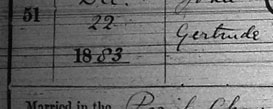 51
Dec. John
22
Gertrude
1883
Married in the Parish